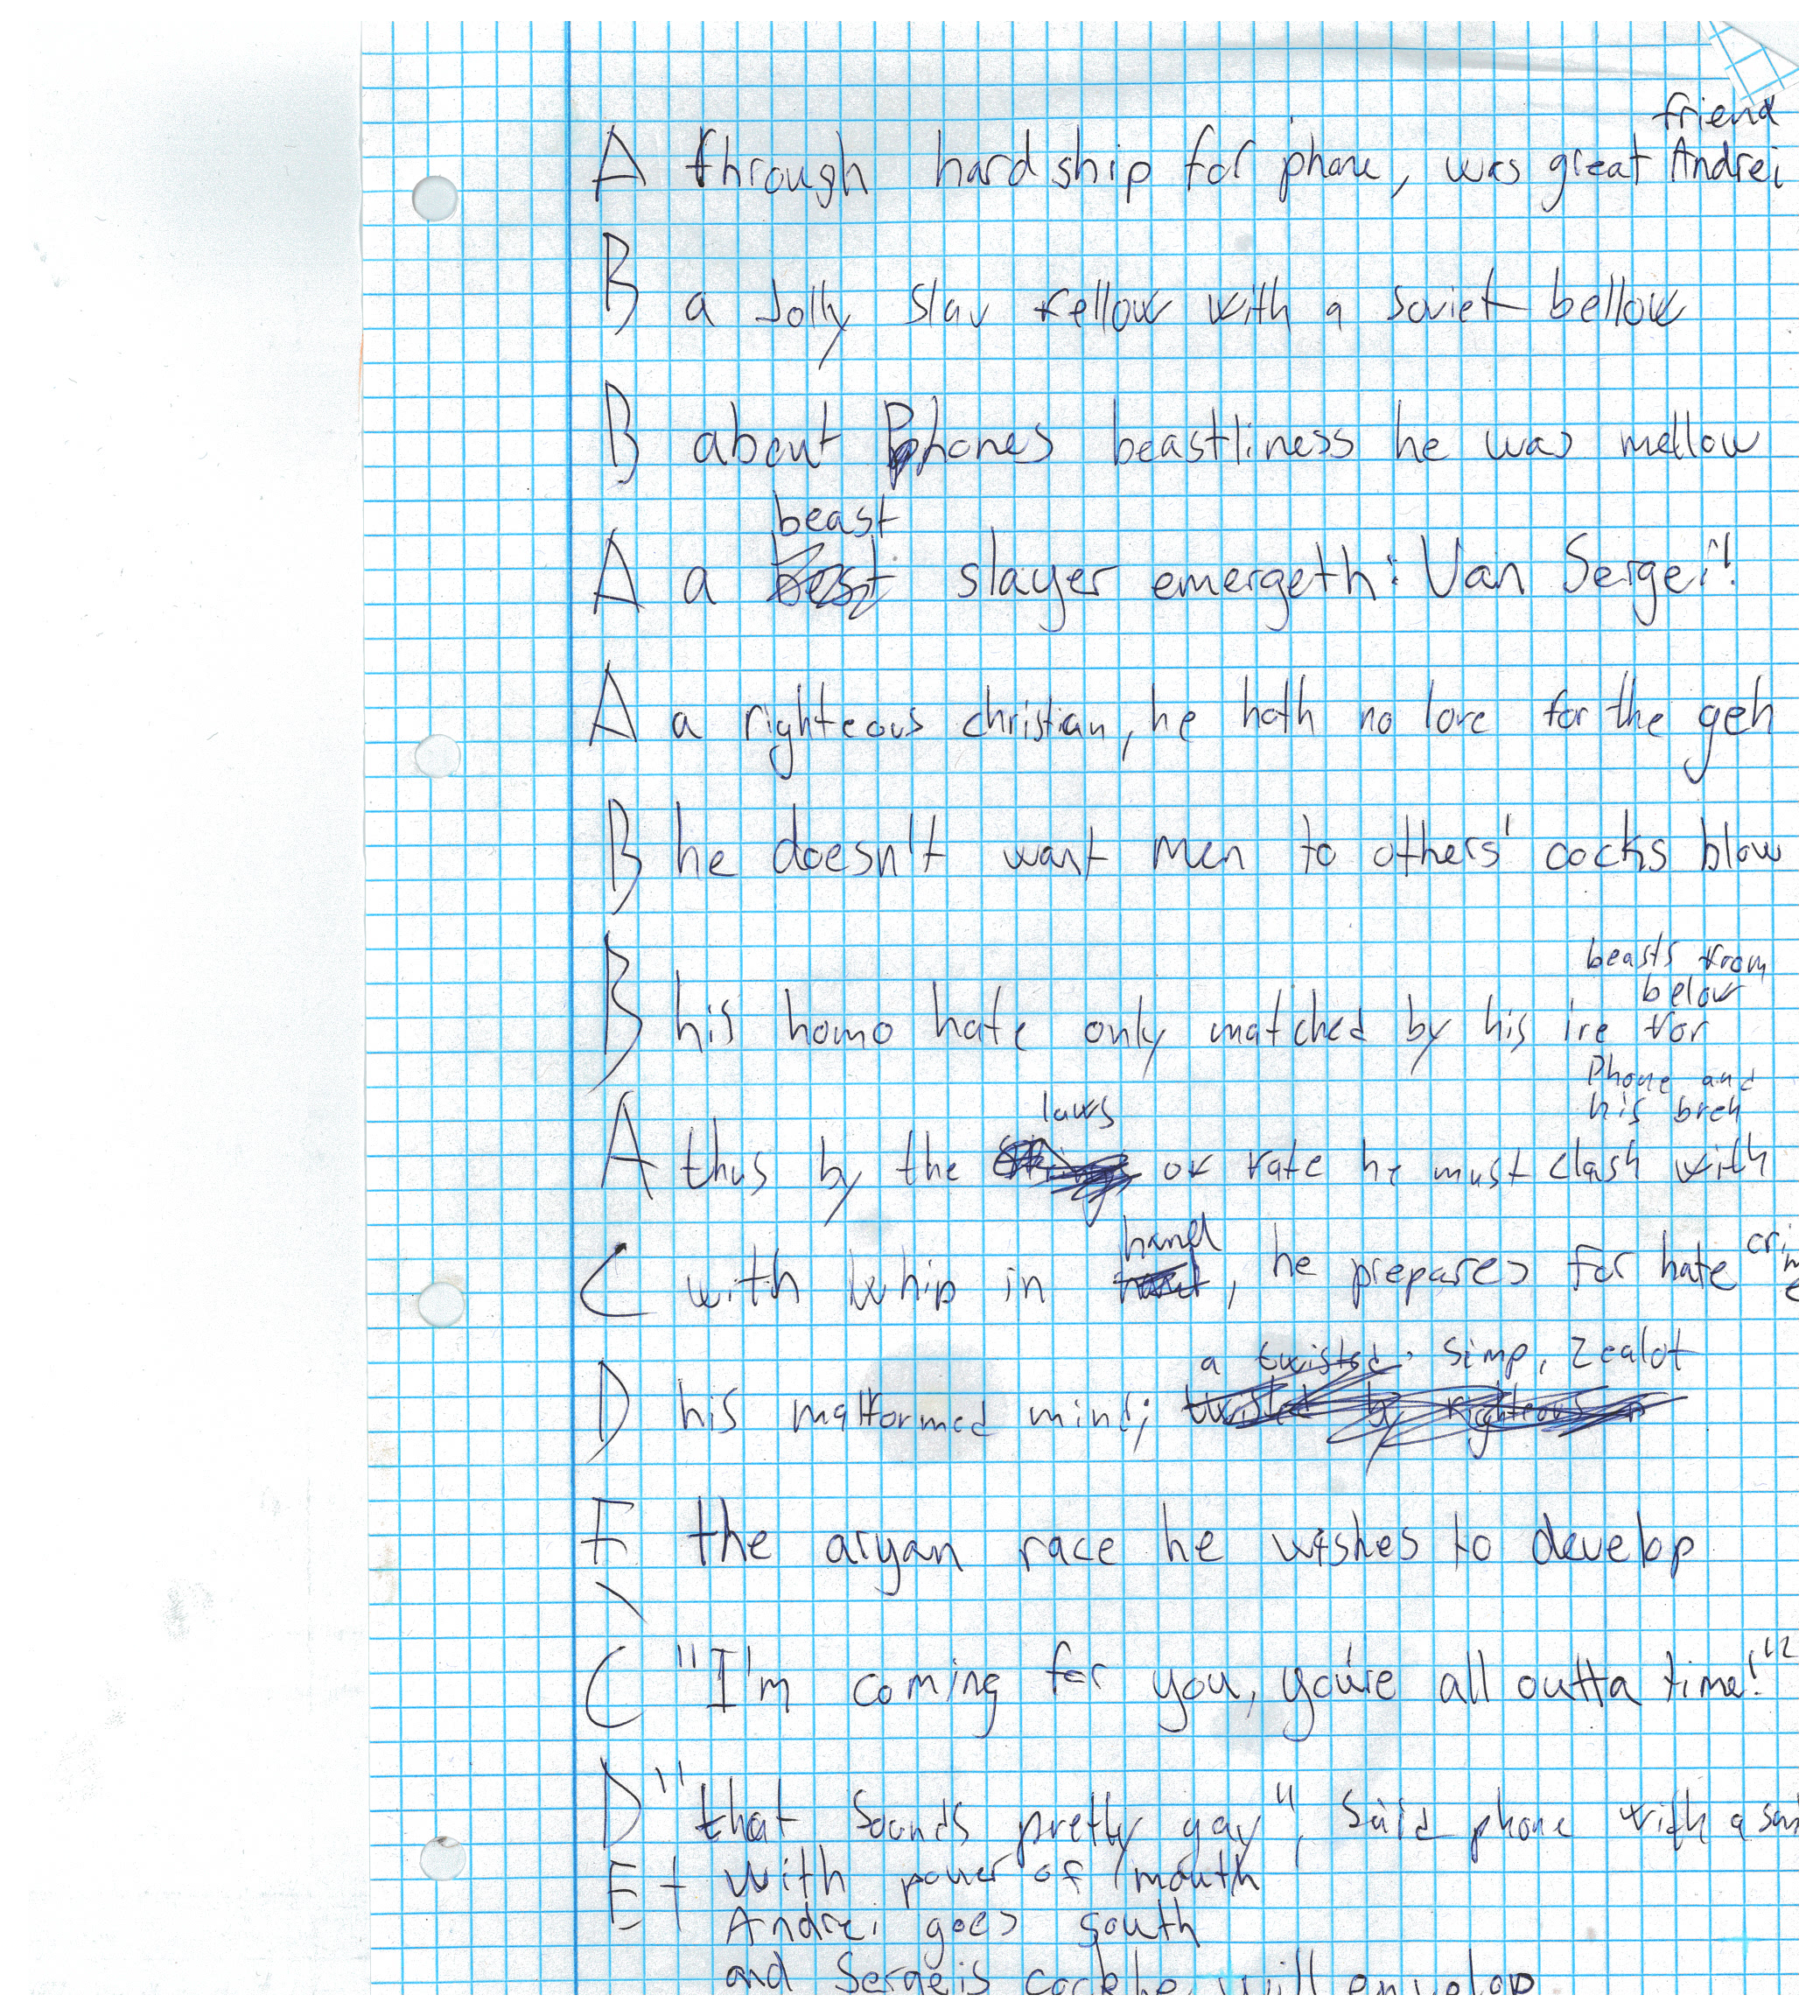 friend
A through hardship for phone, was great Andrei
B a Jolly slav fellow with a soviet bellow
B about Phones beastliness he was mellow
beast
A a slayer emergeth: Van Sergei"!
A a righteous christian, he hath no love for the geh
B he doesn't want men to others' cocks blow
beasts from
below
B his homo hate only matched by his ire for
Phone and
his breh
laws
A thus by the of fate he must clash with
hand
C with whip in , he prepares for hate crime
a simp, zealot
D his malformed mind;
E the aryan race he wishes to develop
C "I'm coming for you, you're all outta time!"
D "that sounds pretty gay", said phone with a
E with power of mouth
Andrei goes south
and Sergeis cock he will envelop